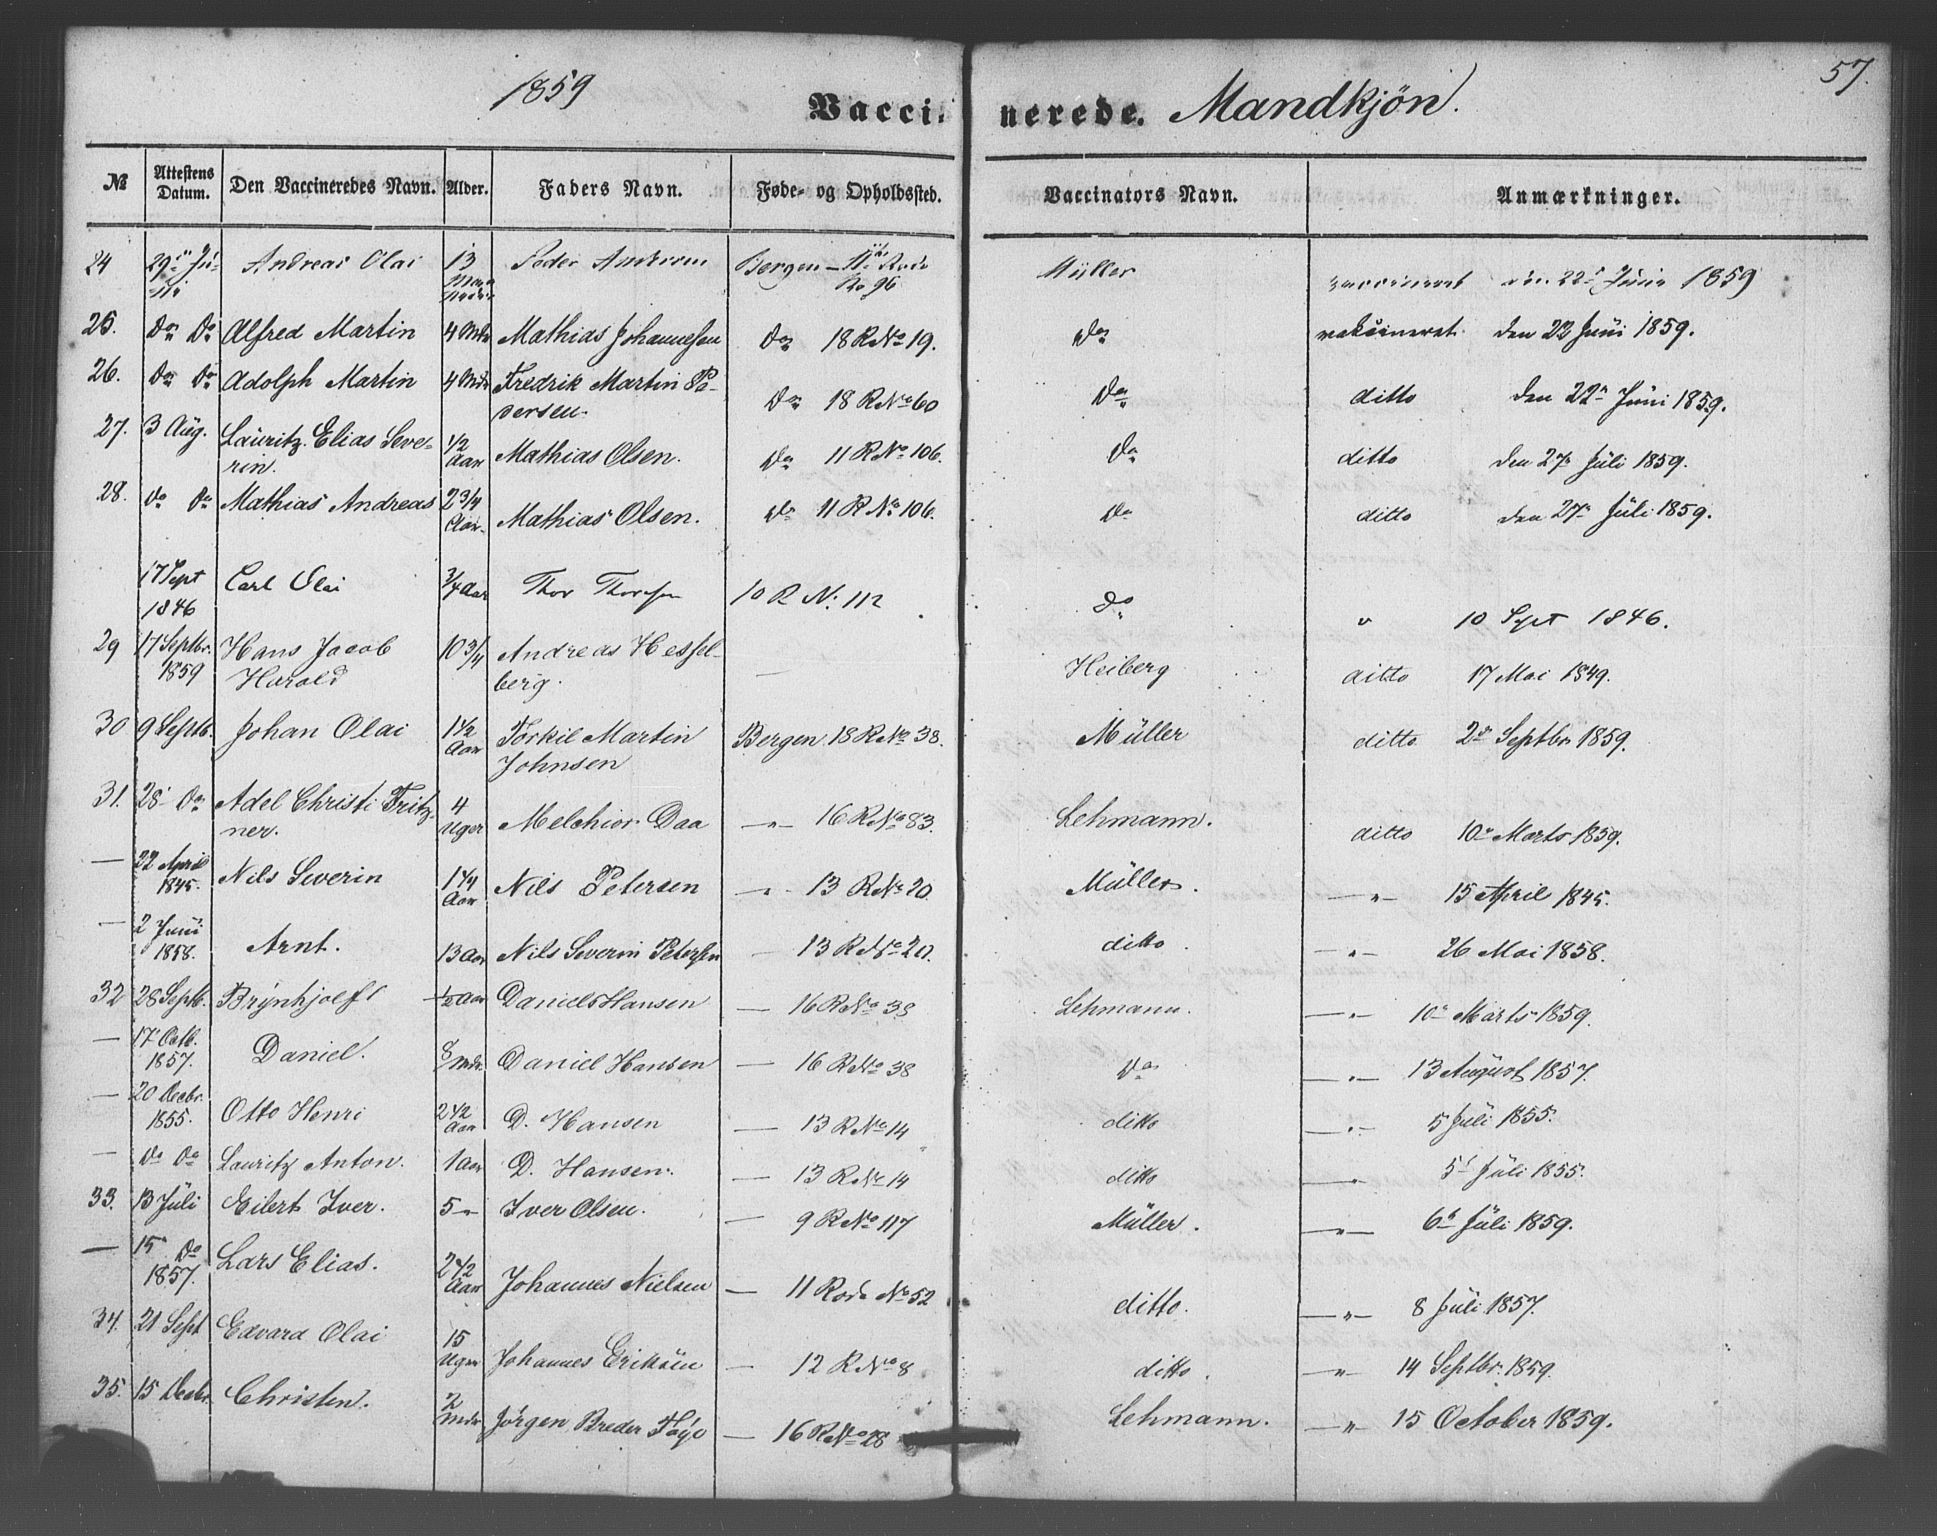 1859
57.
Vaccinerede. Mandkjön.
№ Attestens Datum. Den Vaccineredes Navn. Alder. Faders Navn. Føde- og Opholdssted. Vaccinators Navn. Anmærkninger.
24 29 Juni Andreas Olai 13 Maaneder Peder Andersen Bergen - 11 Rode No 96 Müller vaccineret den 22 Junii 1859
25. Do Do Alfred Martin 4 Mdr Mathias Johannesen Do 18 R No 19. Do vakcineret den 22 Juni 1859.
26. Do Do Adolph Martin 4 Mdr Fredrik Martin Pe-
dersen. Do 18 R No 60 Do ditto den 22 Juni 1859.
27. 3 Aug. Lauritz Elias Seve-
rin. 1/2 Aar Mathias Olsen. Do 11 R No 106. Do ditto den 27 Juli 1859.
28. Do Do Mathias Andreas 2 3/4 Aar. Mathias Olsen. Do 11 R No 106. Do ditto den 27 Juli 1859.
17 Sept 1846 Carl Olai 3/4 Aar Thor Thorsen 10 R N. 112 Do " 10 Sept 1846.
29 17 Septbr. 1859 Hans Jacob
Harald 10 3/4 Andreas Hessel-
berg. — Heiberg ditto 17 Mai 1849.
30 9 Septb. Johan Olai 1 1/2 Aar Torkil Martin
Johnsen Bergen 18 R No 38. Müller ditto 2 Septbr 1859.
31. 28 Do Adel Christi Fritz-
ner. 4 Uger Melchior Daa —"— 16 R No 83. Lehmann. ditto 10 Marts 1859.
— 22 April 1845. Nils Severin 1 1/4 Aar Nils Petersen —"— 13 R No 20. Müller. —"— 15 April 1845.
— 2 Juni 1858. Arnt. 13 Aar Nils Severin Petersen — 13 R No 20. ditto —"— 26 Mai 1858.
32 28 Septb. Brynhjolf 1/2 Aar Daniel Hansen — 16 R No 38 Lehmann. —"— 10 Marts 1859.
— 17 Octb. 1857. Daniel. 8 Mdr. Daniel Hansen — 16 R No 38 Do —"— 13 August 1857.
— 20 Decbr. 1855. Otto Henri 2 1/2 Aar D. Hansen — 13 R No 14 ditto —"— 5 Juli 1855.
— Do Do Lauritz Anton. 1 Aar D. Hansen. — 13 R No 14 ditto —"— 5 Juli 1855.
33. 13 Juli Eilert Iver. 5 —"— Iver Olsen. — 9 R No 117 Müller. —"— 6 Juli 1859.
— 15 Do 1857. Lars Elias. 2 1/2 Aar Johannes Nielsen — 11 Rode No 52 ditto. —"— 8 Juli 1857.
34. 21 Sept Edvard Olai 15 Uger Johannes Eriksen — 12 R No 8 ditto. —"— 14 Septbr. 1859.
35. 15 Decbr. Christen. 2 Mdr Jörgen Breder — 16 R No 28 Lehmann. —"— 15 October 1859.